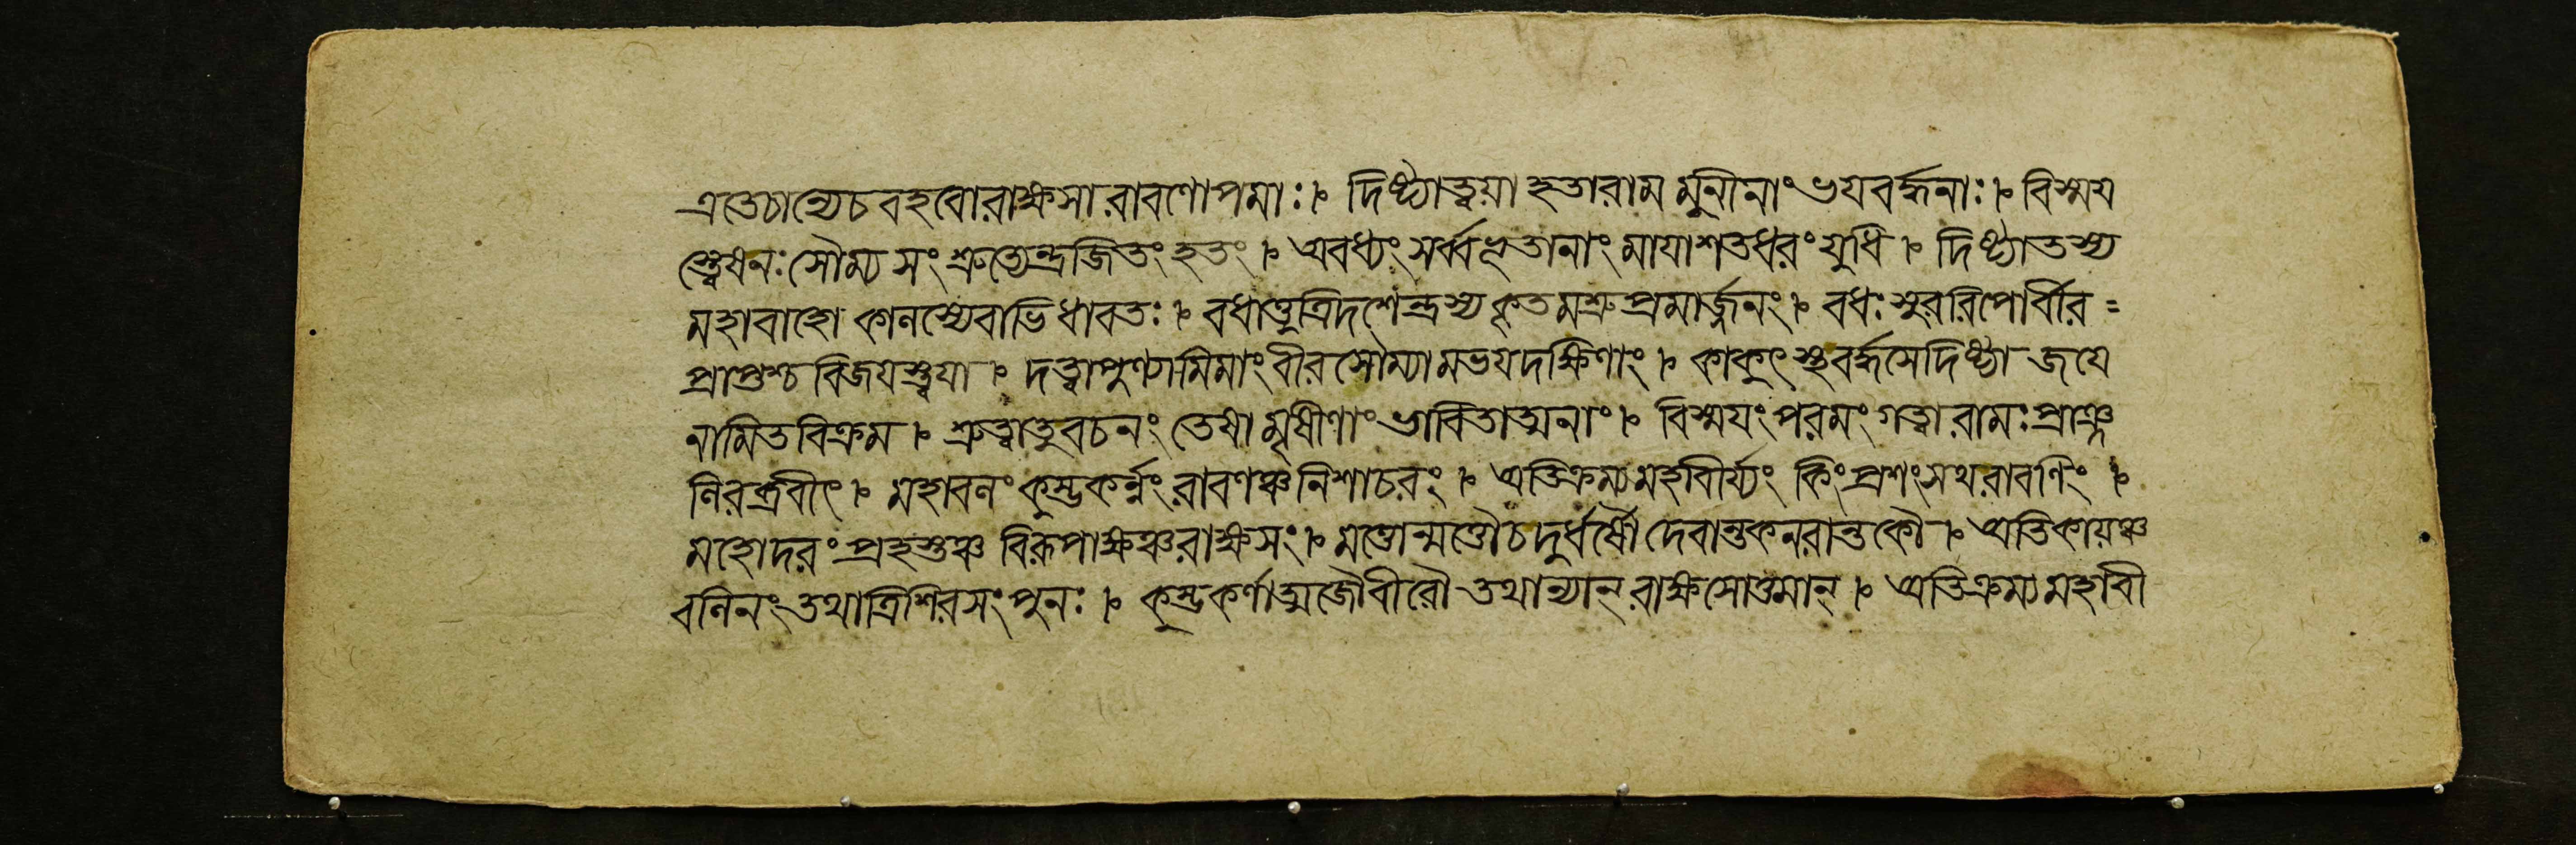 এতেচান্যেচ বহবোরাক্ষসা রাবণোপমাঃ।৹ দিষ্ট্যাত্বয়া হতারাম মুনীনাং ভযবর্দ্ধনাঃ।৹ বিস্ময
স্ত্বেষনঃ সৌম্য সংশ্রুত্যেন্দ্রজিতং হতং।৹ অবধ্যং সর্ব্বভূতানাং মাযাশতধরং যুধি।৹ দিষ্ট্যাতস্য
মহাবাহো কালস্যেবাভিধাবতঃ।৹ বধাত্তুত্রিদশেন্দ্রস্য কৃতমশ্রুপ্রমার্জ্জনং।৹ বধঃ সুররিপোর্বীর =
প্রাপ্তশ্চ বিজযস্ত্বযা।৹ দত্ত্বাপুণ্যামিমাংবীর সৌম্যামভযদক্ষিণাং।৹ কাকুৎস্থবর্দ্ধসেদিষ্ট্যা জযে
নামিতবিক্রম।৹ শ্রুত্বাতুবচনং তেষামৃষীণাং ভাবিতাত্মনাং।৹ বিস্মযংপরমং গত্বা রামঃ প্রাঞ্জ
লিরব্রবীৎ।৹ মহাবলং কুম্ভকর্ন্নং রাবণঞ্চ নিশাচরং।৹ অতিক্রম্য মহাবীর্য্যং কিংপ্রশংসথ রাবণিং।৹
মহোদরং প্রহস্তঞ্চ বিরূপাক্ষঞ্চরাক্ষসং।৹ মত্তোন্মত্তৌচ দুর্ধর্ষৌ দেবান্তকনরান্তকৌ।৹ অতিকায়ঞ্চ
বলিনং তথাত্রিশিরসং পুনঃ।৹ কুম্ভকর্ণাত্মজৌবীরৌ তথান্যান্ রাক্ষসোত্তমান্।৹ অতিক্রম্য মহাবী